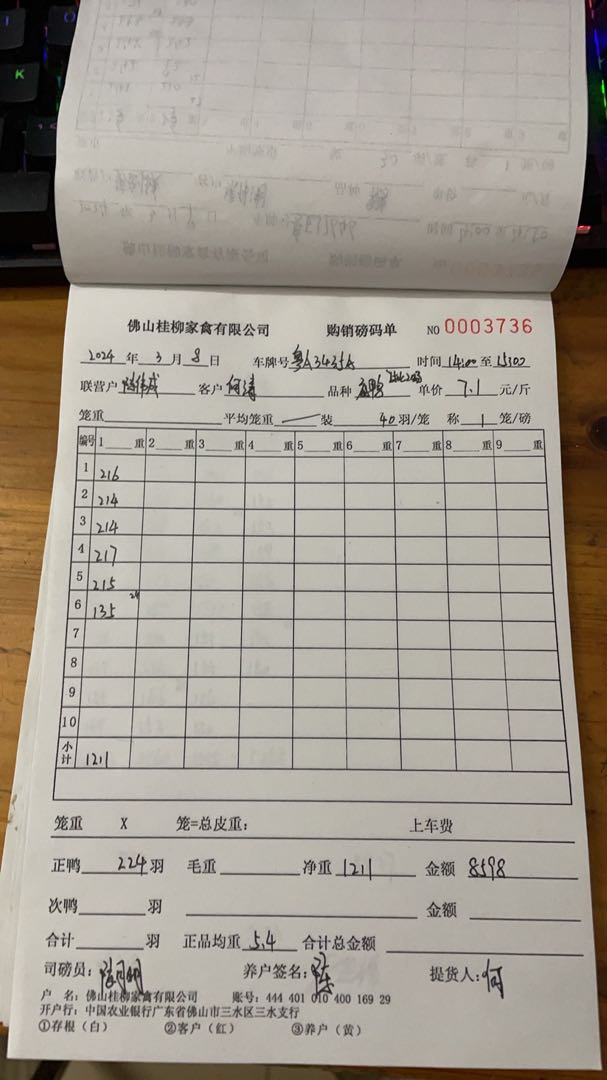 佛山桂柳家禽有限公司 购销磅码单 NO 0003736
2024 年 3 月 8 日 车牌号 时间 14:00 至 15:00
联营户 客户 何涛 品种 单价 7.1 元/斤
笼重 平均笼重 装 40 羽/笼 称 1 笼/磅
编号 1 重 2 重 3 重 4 重 5 重 6 重 7 重 8 重 9 重
1 216
2 214
3 214
4 217
5 215
6 135 24
7
8
9
10
小计 1211
笼重 X 笼=总皮重: 上车费
正鸭 224 羽 毛重 净重 1211 金额 8598
次鸭 羽 金额
合计 羽 正品均重 5.4 合计总金额
司磅员: 养户签名: 提货人: 何
户 名: 佛山桂柳家禽有限公司 账号: 444 401 010 400 169 29
开户行: 中国农业银行广东省佛山市三水区三水支行
①存根(白) ②客户(红) ③养户(黄)